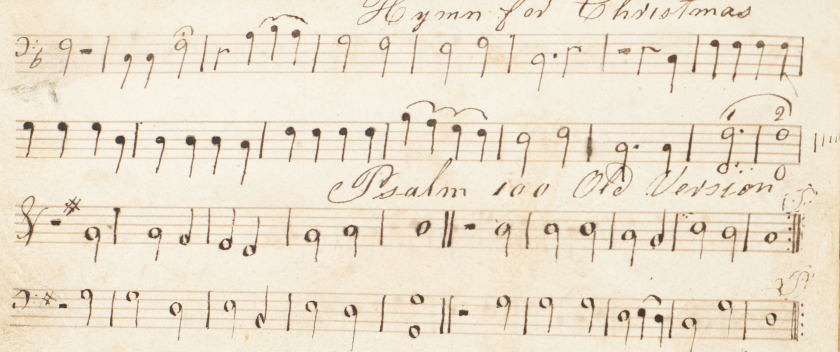 Hymn for Christmas
1 2
Psalm 100 Old Version